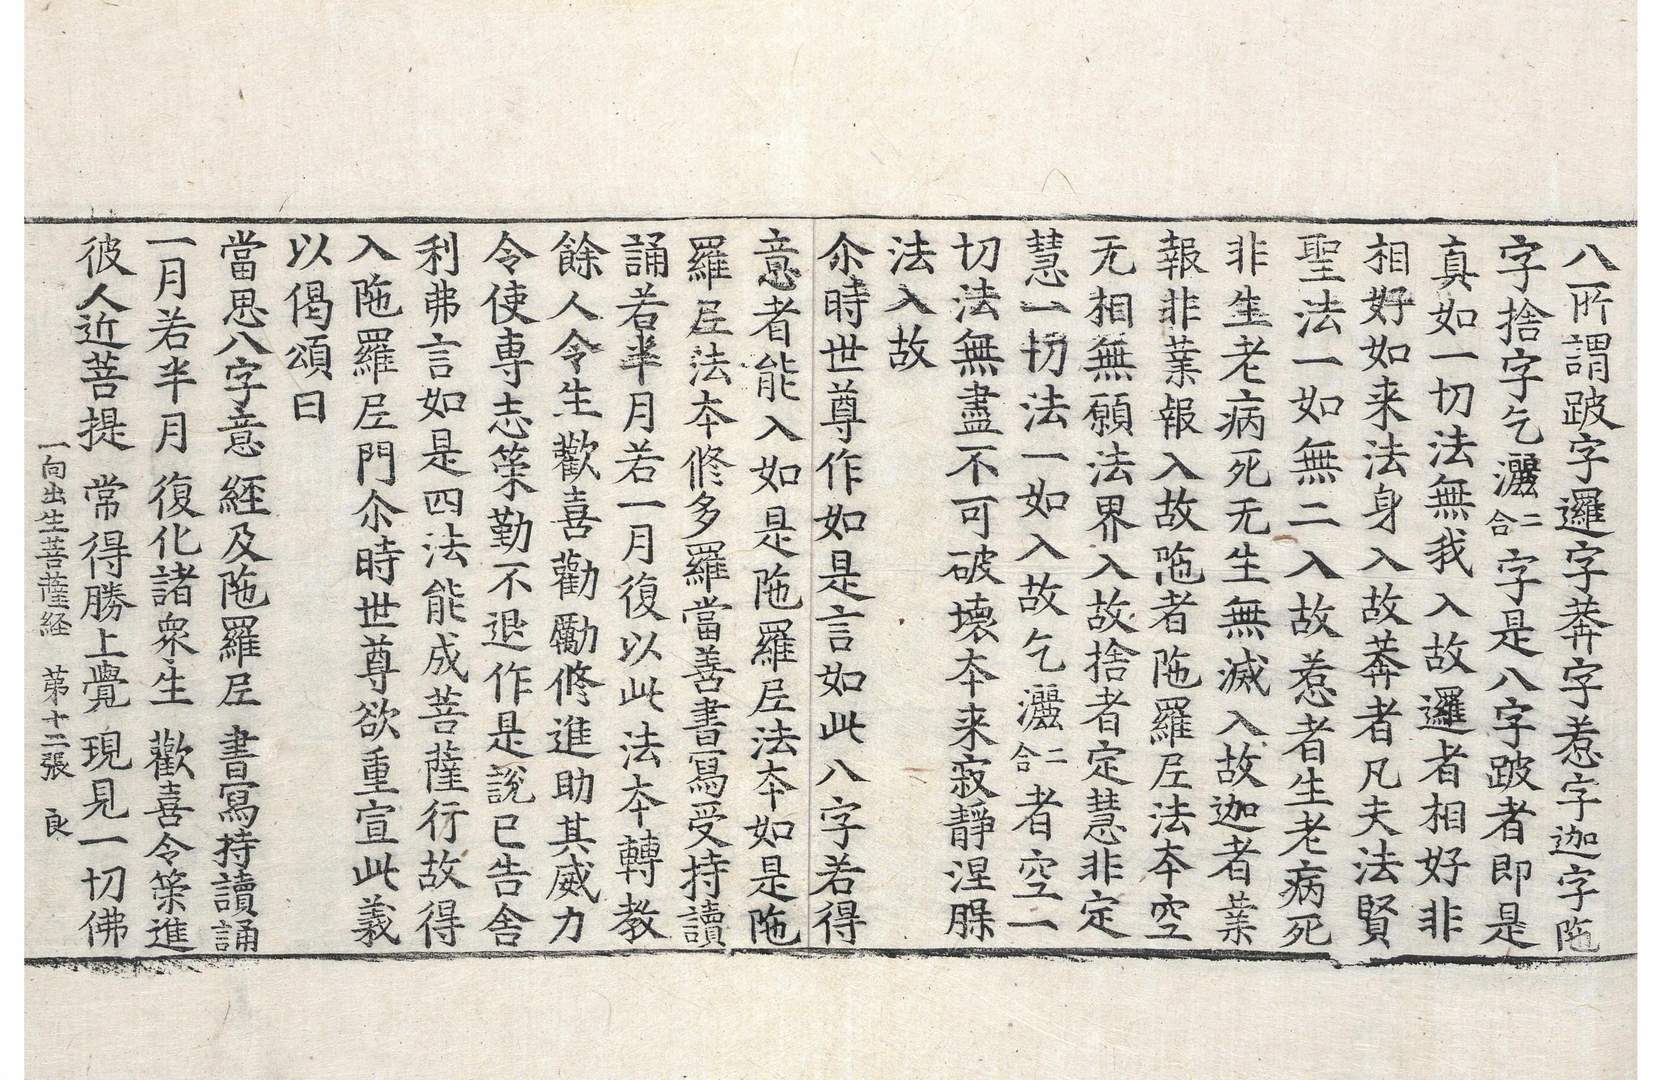 八所謂跛字邏字莾字惹字迦字陁
字捨字乞灑二合字是八字跛者即是
真如一切法無我入故邏者相好非
相好如来法身入故莾者凡夫法賢
聖法一如無二入故惹者生老病死
非生老病死无生無滅入故迦者業
報非業報入故陁者陁羅𡰱法夲空
无相無願法界入故捨者定慧非定
慧一切法一如入故乞灑二合者空一
切法無盡不可破壞夲来寂靜涅槃
法入故
尒時世尊作如是言如此八字若得
意者能入如是陁羅𡰱法夲如是陁
羅𡰱法夲修多羅當善書寫受持讀
誦若半月若一月復以此法夲轉教
餘人令生歡喜勸勵修進助其威力
令使專志䇿勤不退作是說已告舍
利弗言如是四法能成菩薩行故得
入陁羅𡰱門尒時世尊欲重宣此義
以偈頌曰
當思八字意 經及陁羅𡰱 書寫持讀誦
一月若半月 復化諸衆生 歡喜令䇿進
彼人近菩提 常得勝上覺 現見一切佛
一向出生菩薩経 第十二張 良